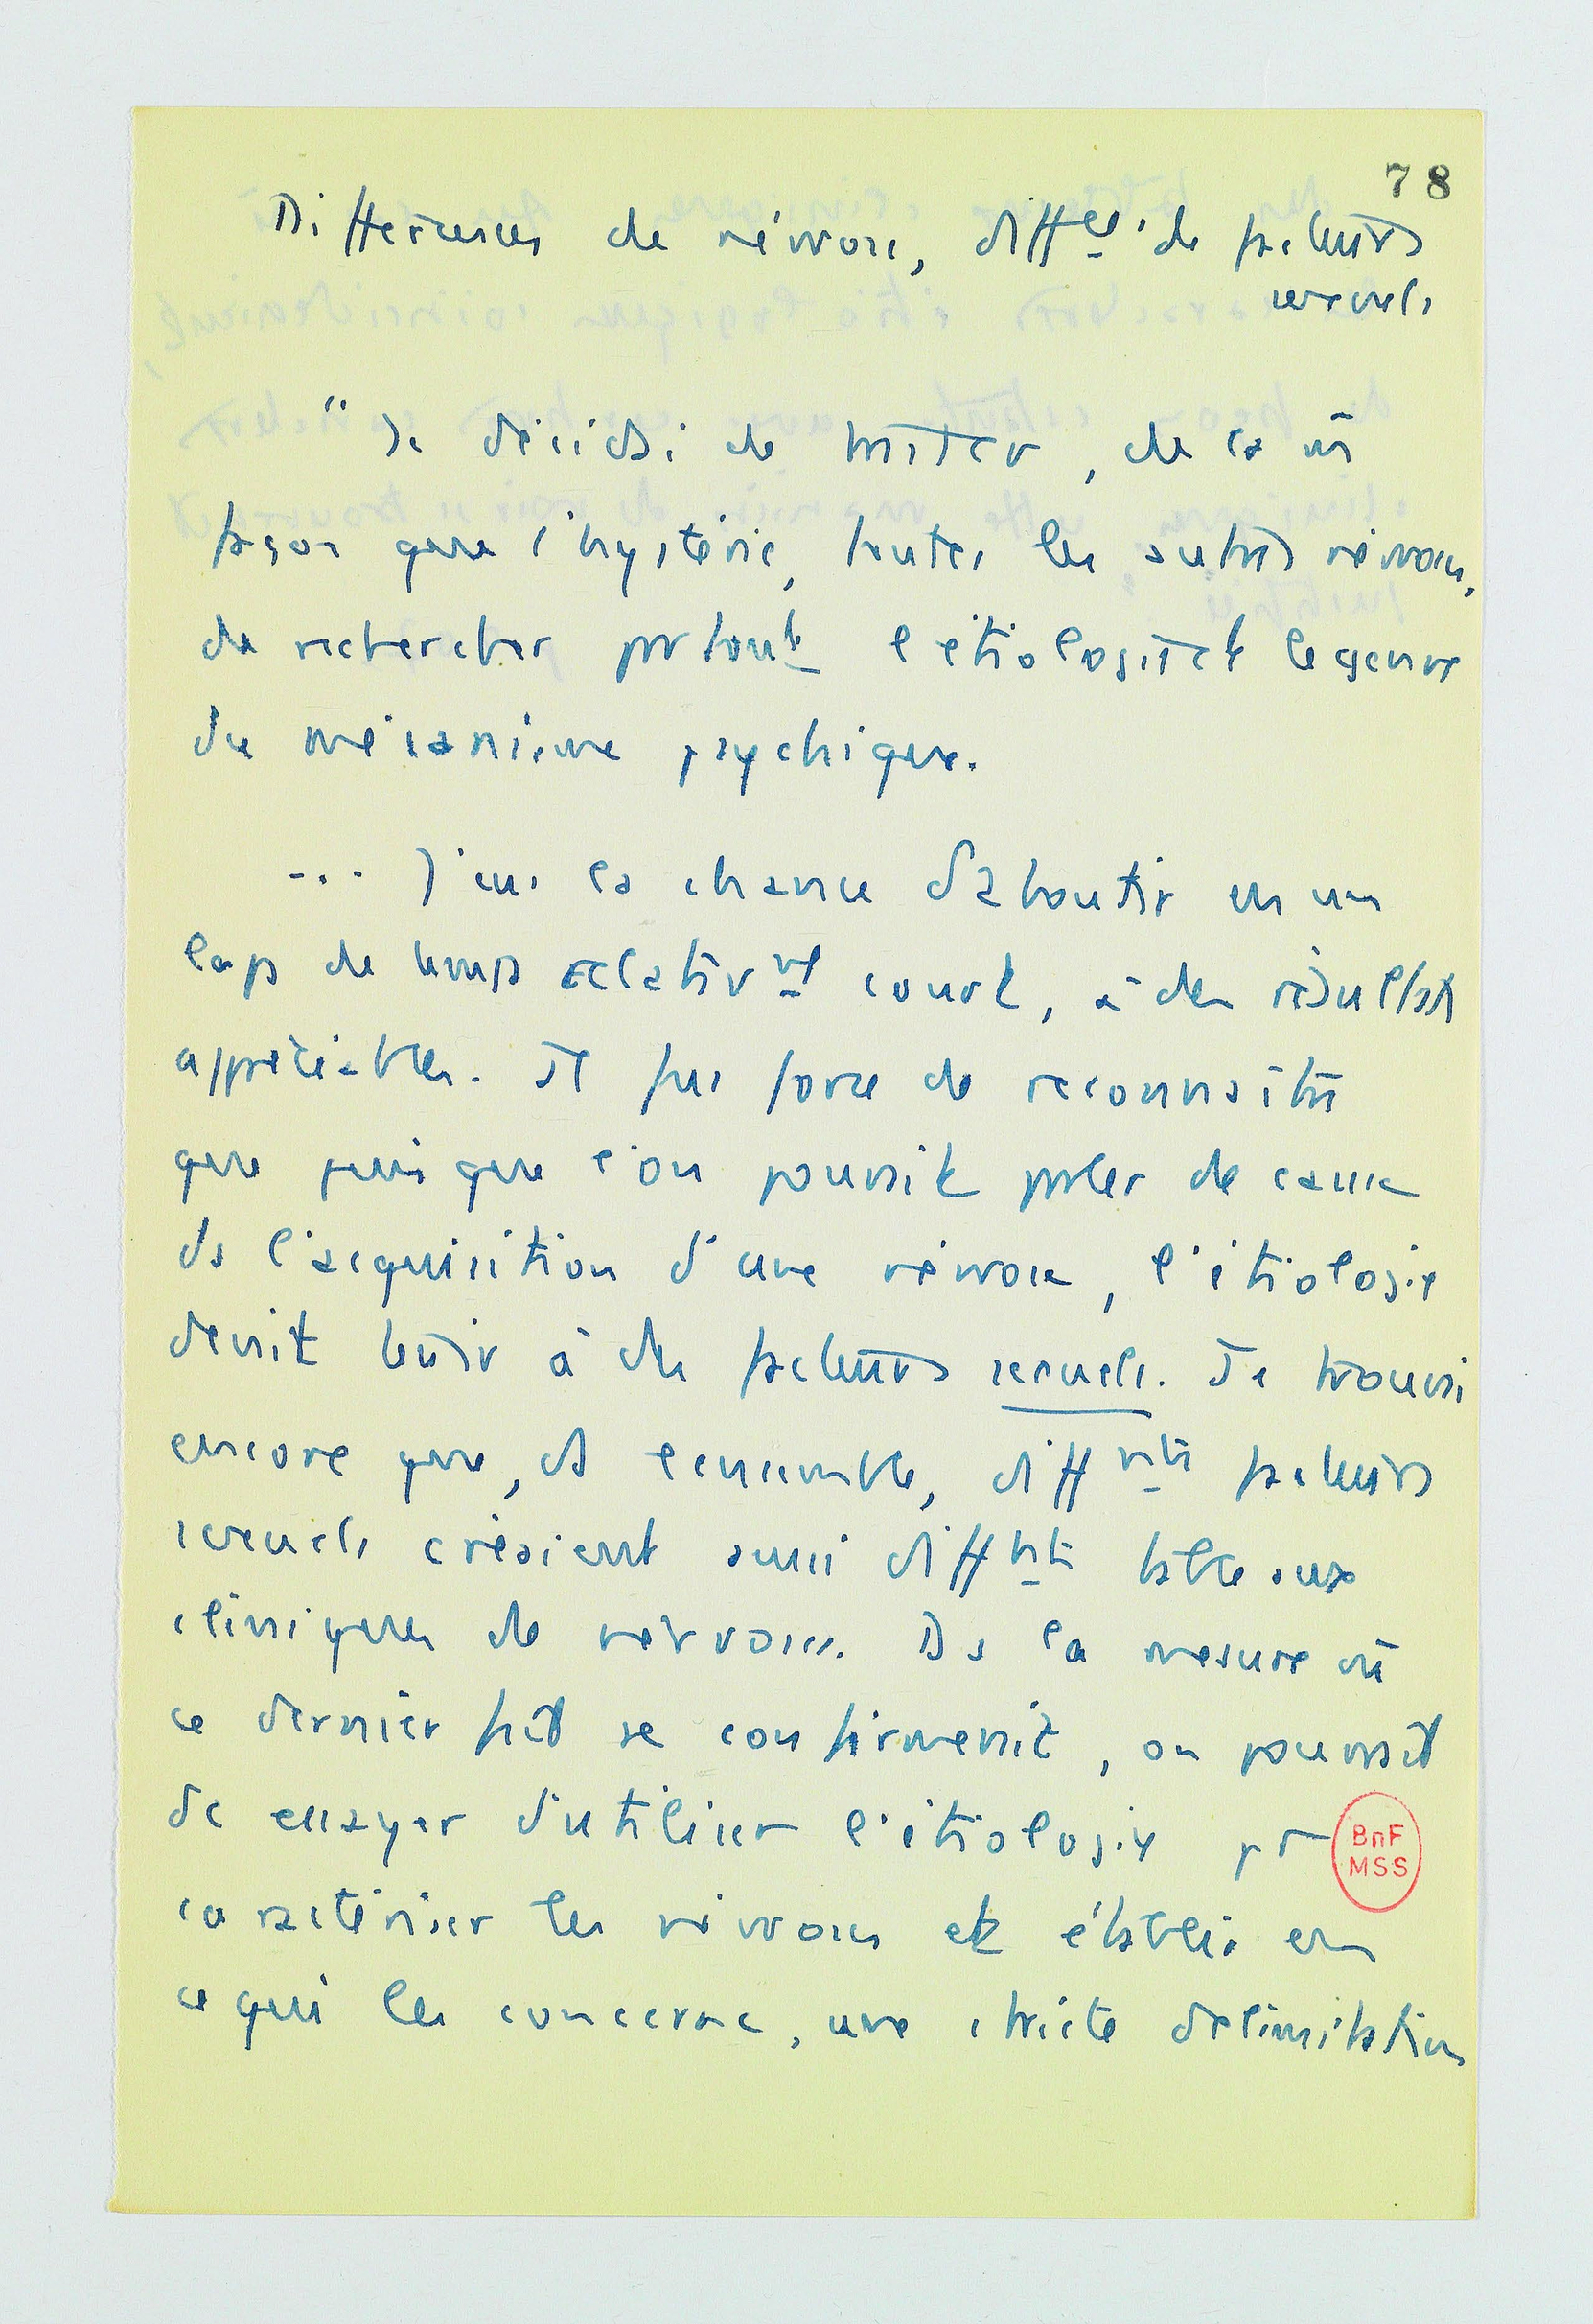 78
Différences de névrose, diff^ces de facteurs
sexuels
" Je décidai de traiter, de la m̄
façon que l'hystérie, toutes les autres névroses,
de rechercher partout l'étiologie et le genre
du mécanisme psychique.
... J'eus la chance d'aboutir en un
laps de temps relativ^mt court, à des résultats
appréciables. Je fus forcé de reconnaître
que puisque l'on pouvait parler de cause
ds l'acquisition d'une névrose, l'étiologie
devait tenir à des facteurs sexuels. Je trouvai
encore que, ds l'ensemble, diff^nts facteurs
sexuels créaient aussi diff^nts tableaux
cliniques de névroses. Ds la mesure où
ce dernier fait se confirmerait, on pouvait
de essayer d'utiliser l'étiologie pr
caractériser les névroses et établir en
ce qui les concerne, une stricte délimitation
BnF
MSS